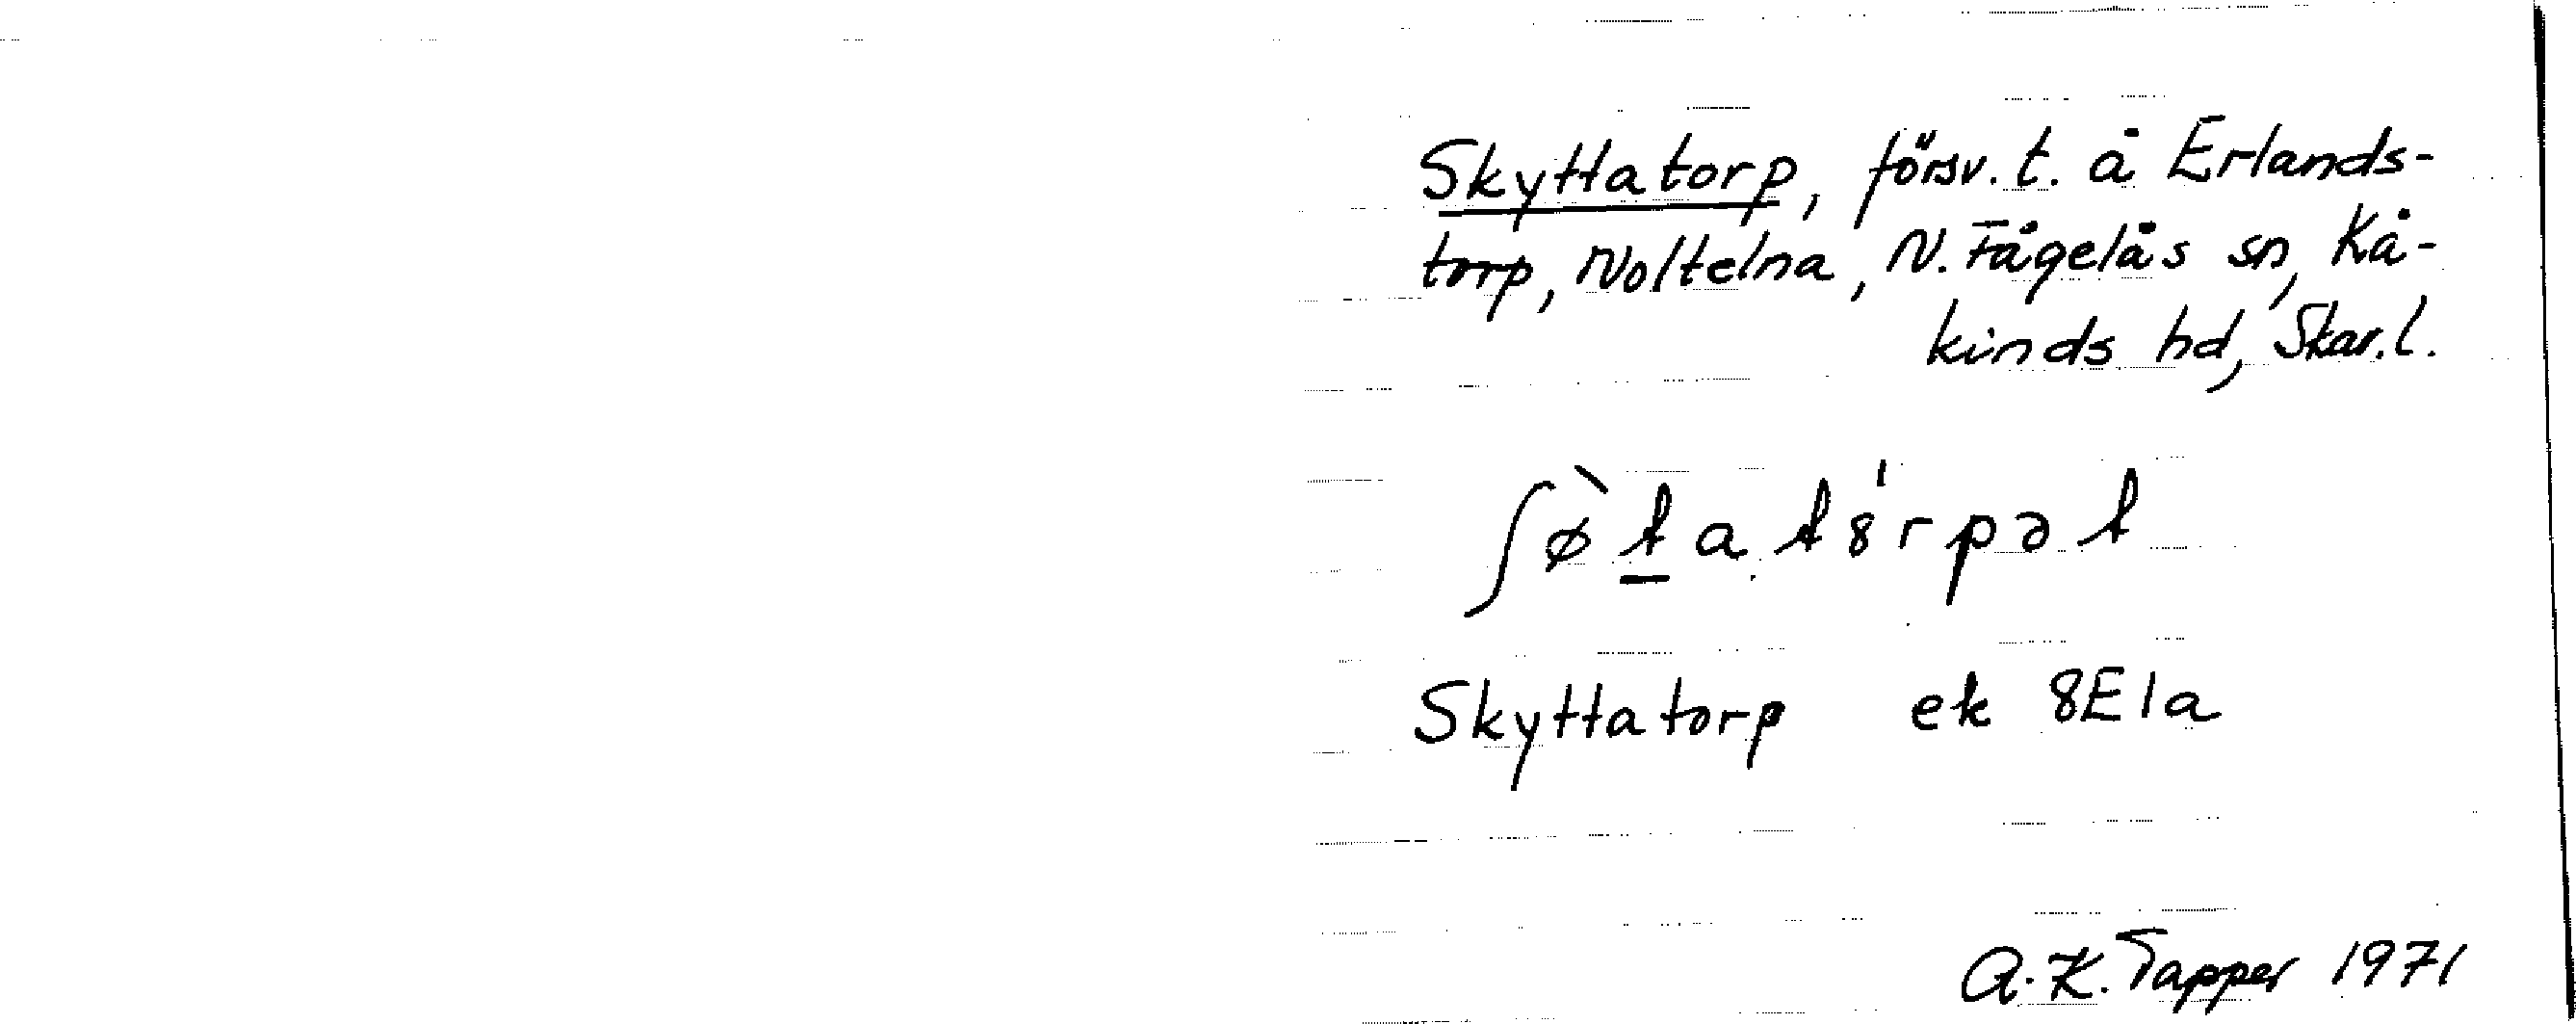 Skyttatorp, försv. t. å Erlands-
torp, Noltelna, N. Fågelås sn, Kå-
kinds hd, Skar. l.
ʃø̀t̲atȣ́rpət
Skyttatorp ek 8E1a
A. K. Tapper 1971